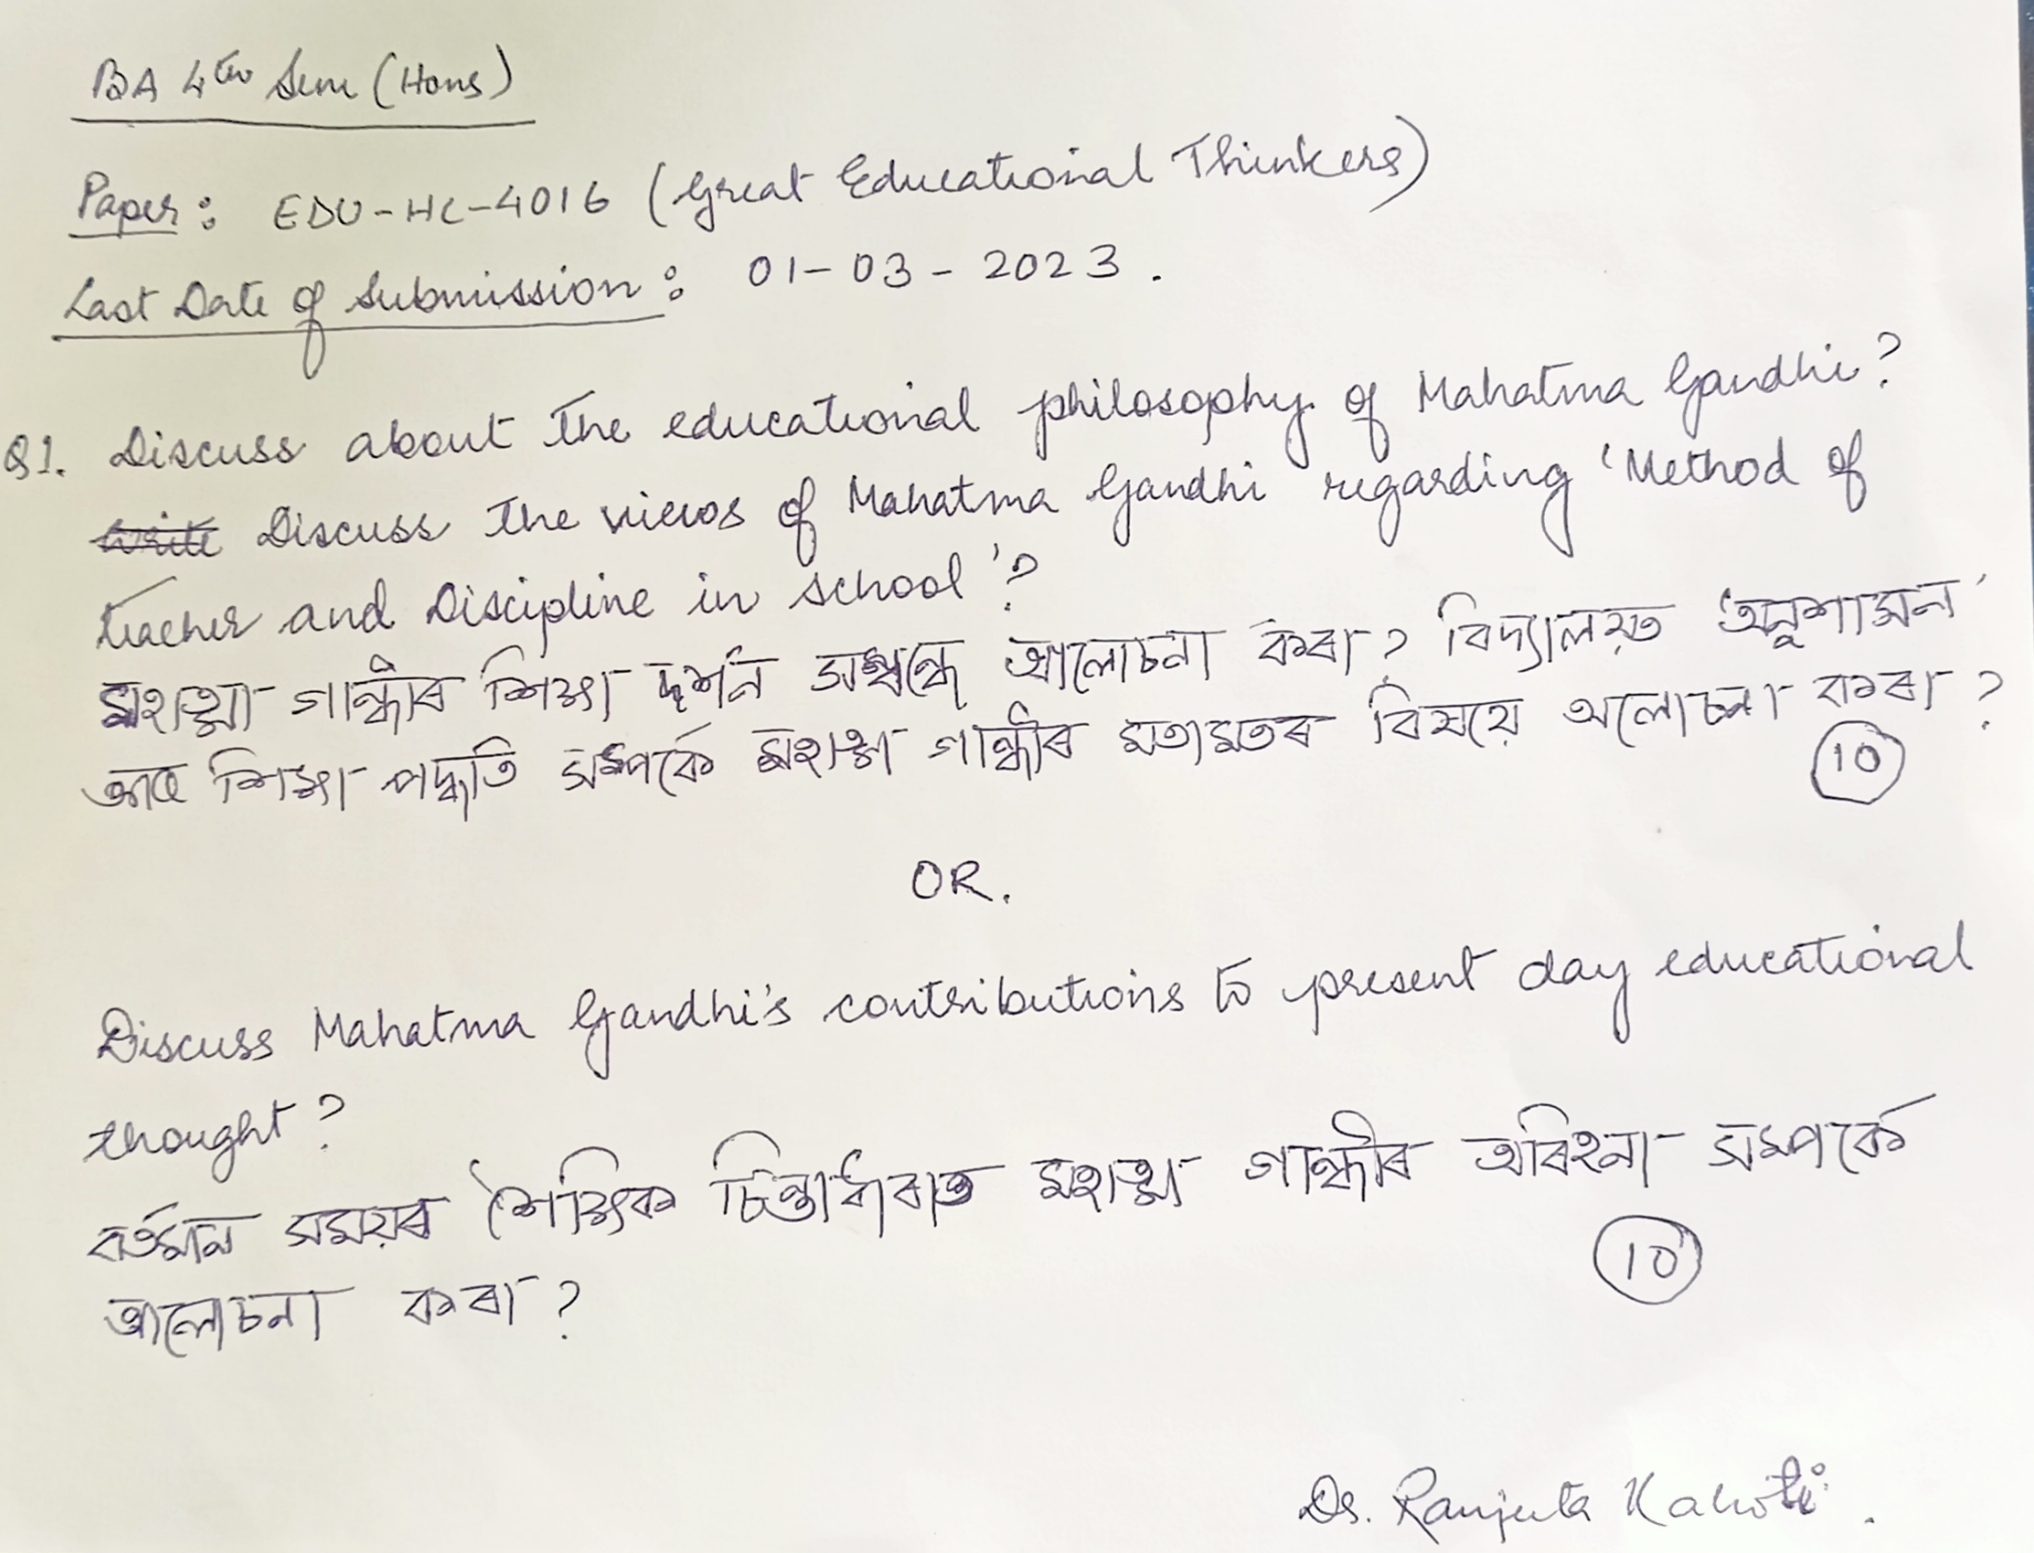 BA 4th Sem (Hons)
Paper: EDU-HC-4016 (Great Educational Thinkers)
Last Date of Submission: 01-03-2023.
Q1. Discuss about the educational philosophy of Mahatma Gandhi?
write Discuss the views of Mahatma Gandhi regarding 'Method of
teacher and Discipline in school'?
মহাত্মা গান্ধীৰ শিক্ষা দৰ্শন সম্বন্ধে আলোচনা কৰা? বিদ্যালয়ত 'অনুশাসন'
আৰু শিক্ষা পদ্ধতি সম্পৰ্কে মহাত্মা গান্ধীৰ মতামতৰ বিষয়ে অলোচনা কৰা?
10
OR.
Discuss Mahatma Gandhi's contributions to present day educational
thought?
বৰ্তমান সময়ৰ শৈক্ষিক চিন্তাধাৰাত মহাত্মা গান্ধীৰ অৱিহনা সম্পৰ্কে
আলোচনা কৰা?
10
Dr. Ranjeeta Kakoti.